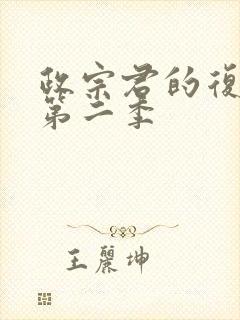 政宗君的復
第二季
王麗坤